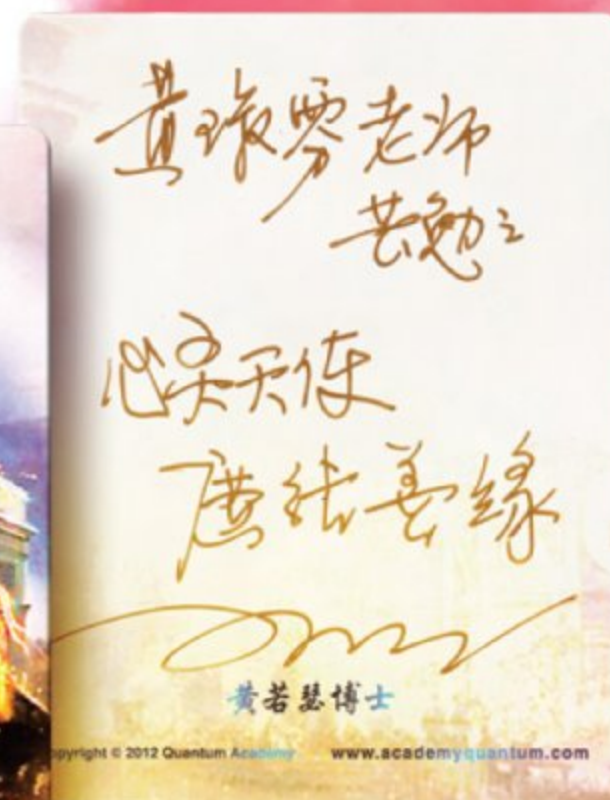 黄璇雰老师
共勉之
心灵天使
广结善缘
黄若瑟博士
opyright © 2012 Quantum Academy www.academyquantum.com